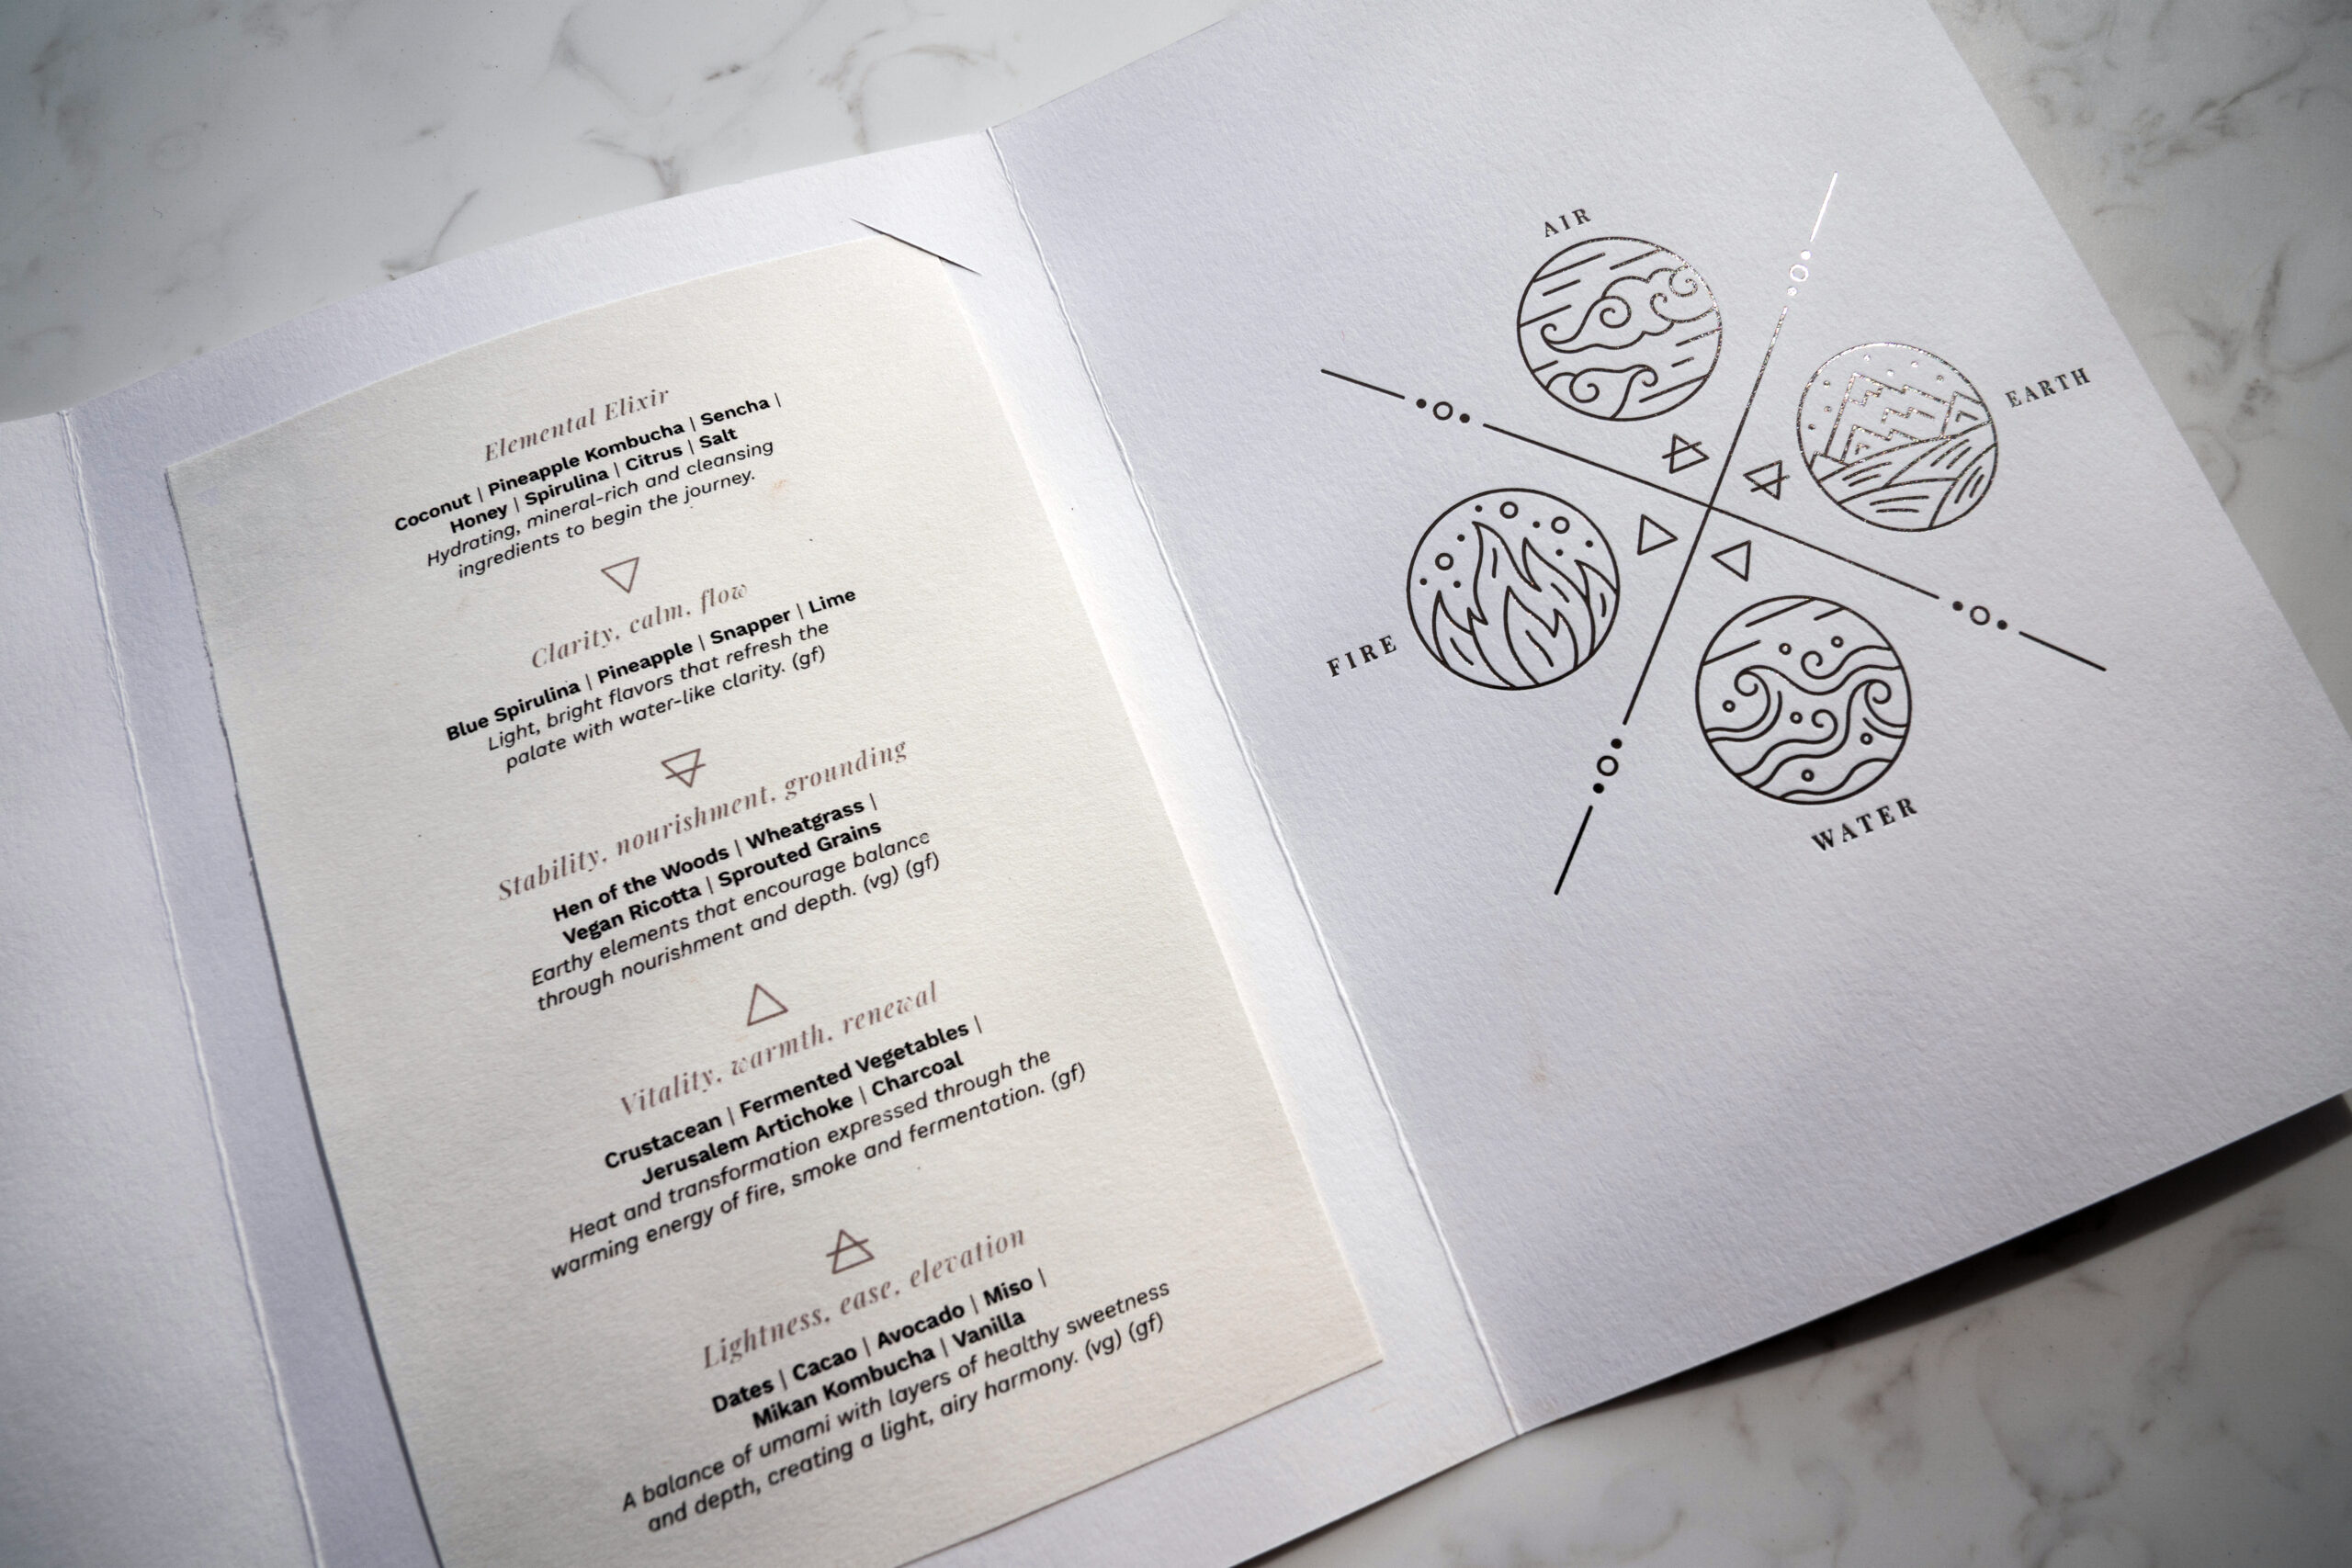 Elemental Elixir
Coconut | Pineapple Kombucha | Sencha |
Honey | Spirulina | Citrus | Salt
Hydrating, mineral-rich and cleansing
ingredients to begin the journey.
Clarity, calm, flow
Blue Spirulina | Pineapple | Snapper | Lime
Light, bright flavors that refresh the
palate with water-like clarity. (gf)
Stability, nourishment, grounding
Hen of the Woods | Wheatgrass |
Vegan Ricotta | Sprouted Grains
Earthy elements that encourage balance
through nourishment and depth. (vg) (gf)
Vitality, warmth, renewal
Crustacean | Fermented Vegetables |
Jerusalem Artichoke | Charcoal
Heat and transformation expressed through the
warming energy of fire, smoke and fermentation. (gf)
Lightness, ease, elevation
Dates | Cacao | Avocado | Miso |
Mikan Kombucha | Vanilla
A balance of umami with layers of healthy sweetness
and depth, creating a light, airy harmony. (vg) (gf)
AIR
EARTH
FIRE
WATER